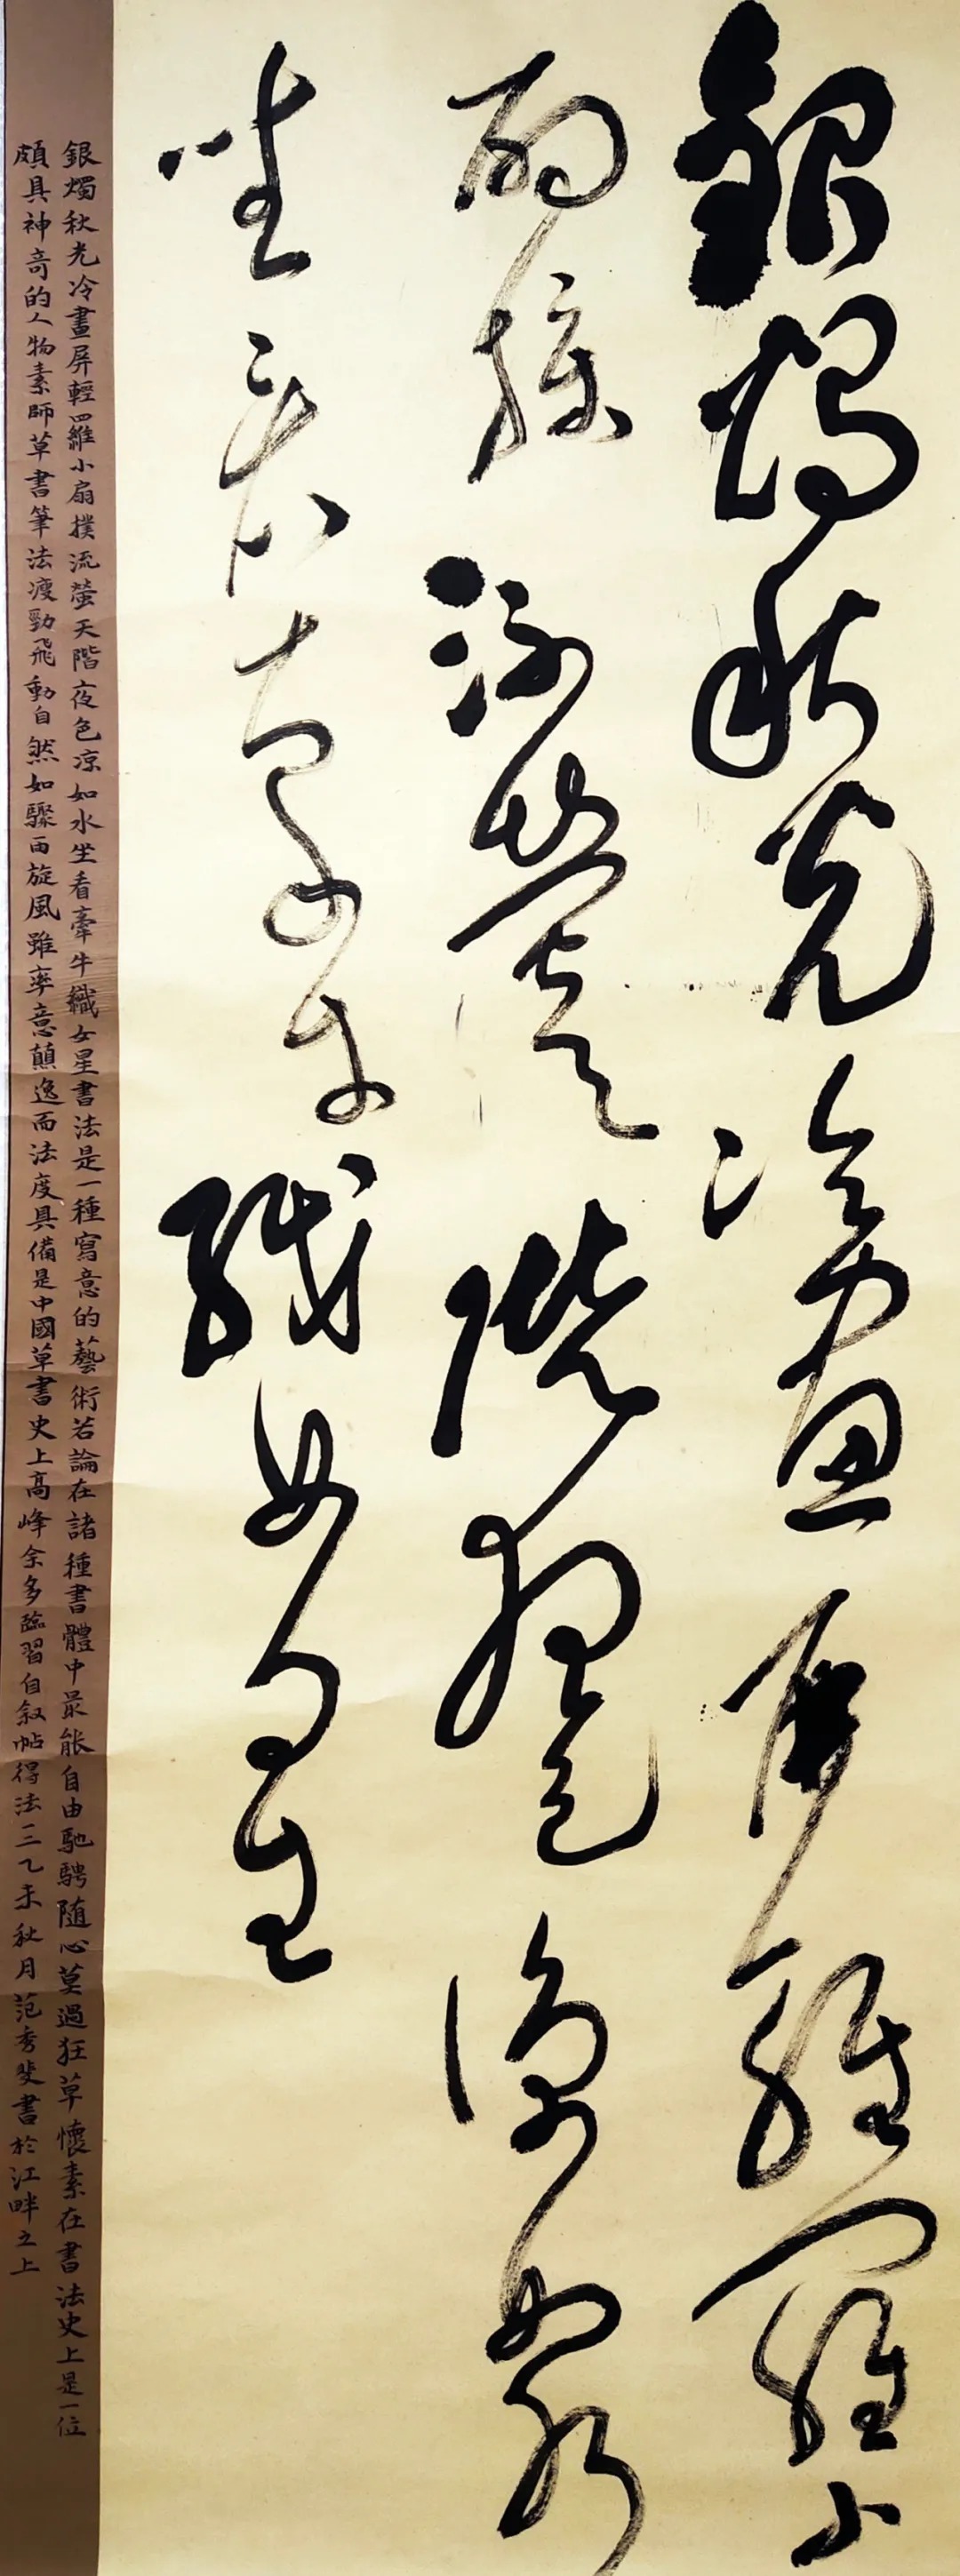 銀燭秋光冷畫屏輕羅小
扇撲流螢天階夜色涼如水
坐看牽牛織女星
銀燭秋光冷畫屏輕羅小扇撲流螢天階夜色凉如水坐看牽牛織女星書法是一種寫意的藝術若論在諸種書體中最能自由馳騁随心莫過狂草懷素在書法史上是一位
頗具神奇的人物素師草書筆法瘦勁飛動自然如驟雨旋風雖率意顛逸而法度具備是中國草書史上高峰余多臨習自叙帖得法三乙未秋月范秀斐書於江畔之上